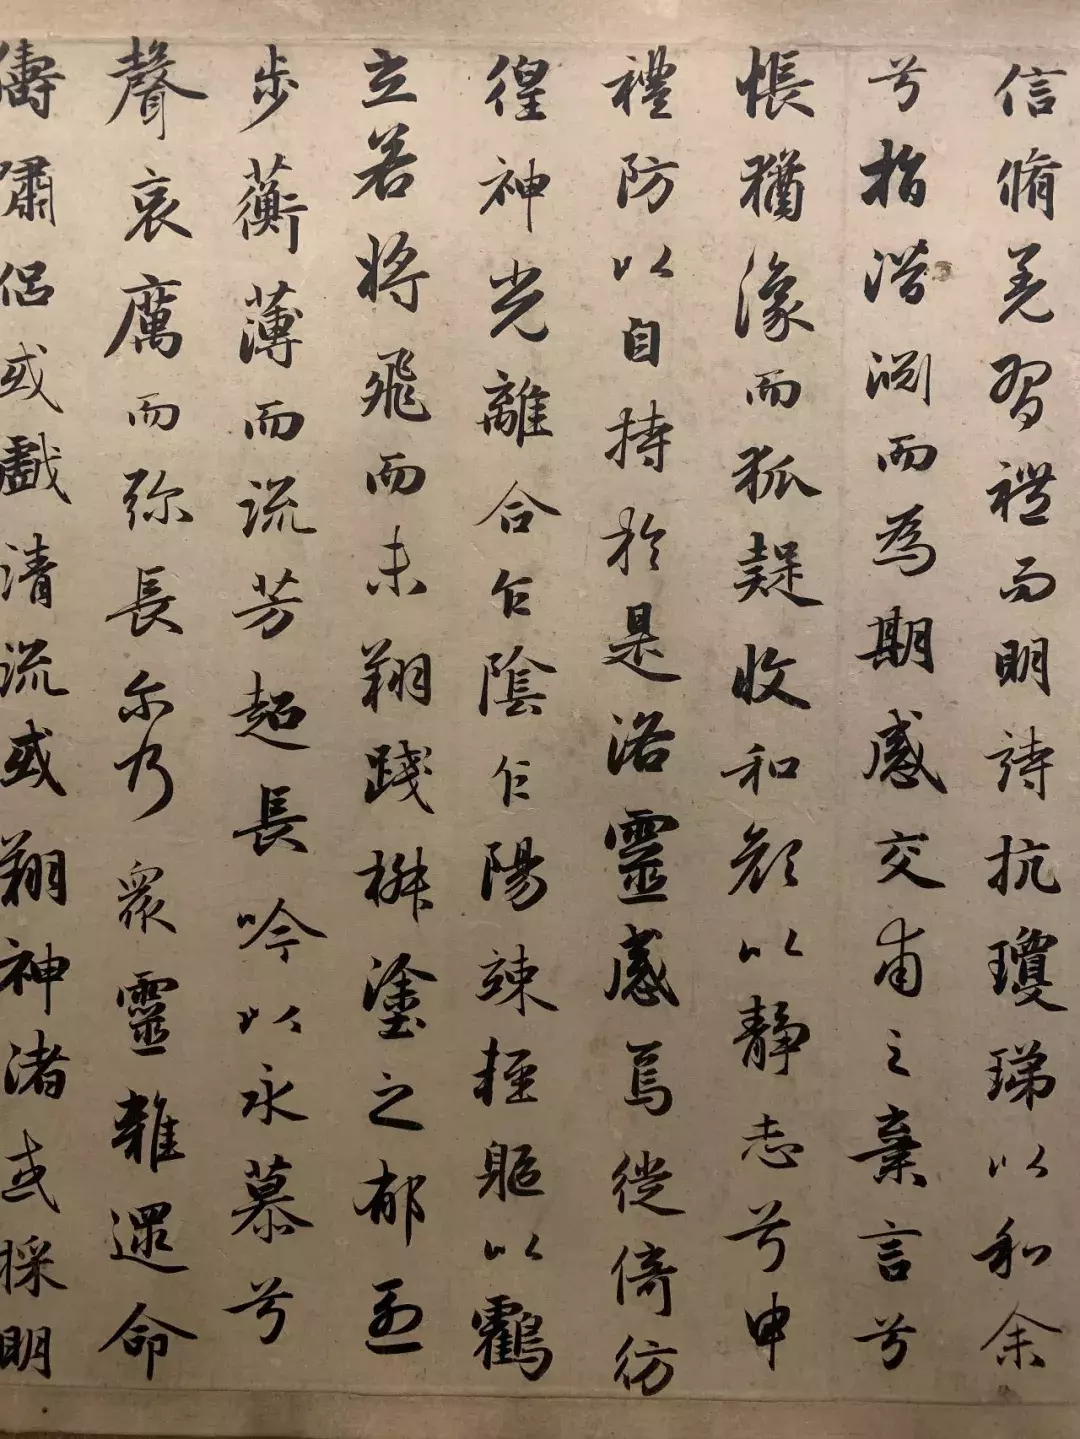 信脩羌習禮而明詩抗瓊珶以和余
兮指潜渊而為期感交甫之棄言兮
悵猶㵟而狐疑收和顔以静志兮申
禮防以自持於是洛靈感焉徙倚彷
徨神光離合乍陰乍陽竦輕軀以鶴
立若将飛而未翔踐椒塗之郁烈
步蘅薄而流芳超長吟以永慕兮
聲哀厲而弥長尔乃衆靈雜遝命
儔嘯侣或戲清流或翔神渚或採明